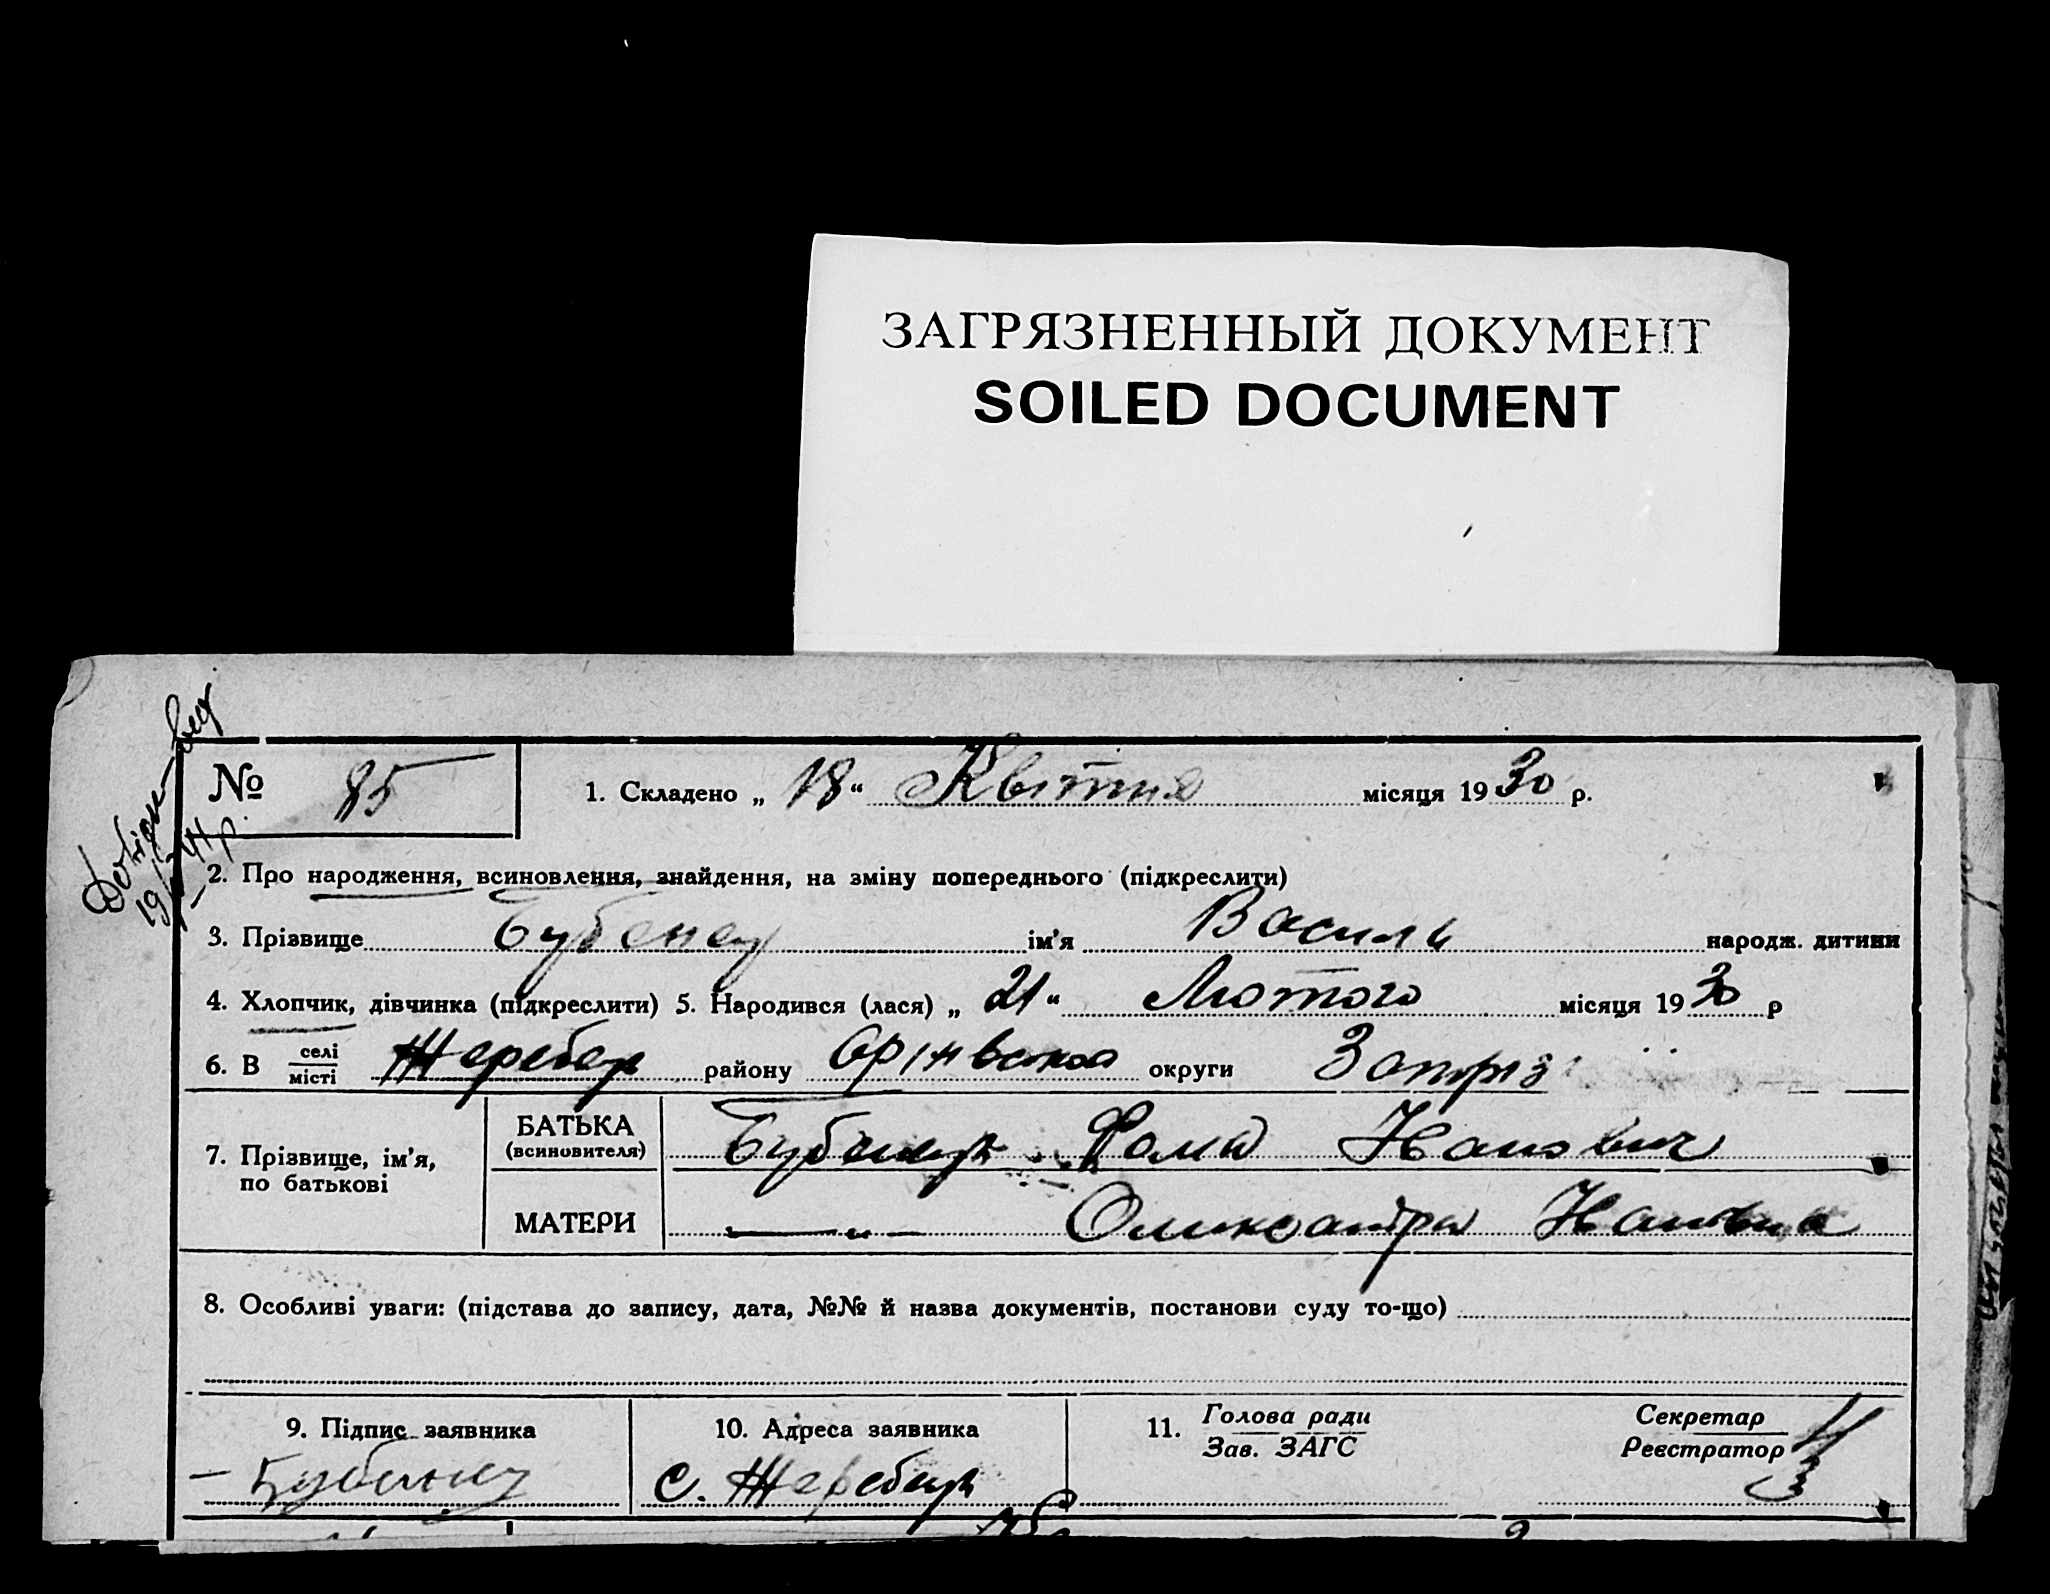 ЗАГРЯЗНЕННЫЙ ДОКУМЕНТ
SOILED DOCUMENT
№ 85
1. Складено „ 18 “ Квітня місяця 19 30 р.
2. Про народження, всиновлення, знайдення, на зміну попереднього (підкреслити)
3. Прізвище Бубенец ім'я Василь народж. дитини
4. Хлопчик, дівчинка (підкреслити) 5. Народився (лася) „ 21 “ Лютого місяця 19 30 р
6. В селі місті Жеребец району Орінвського округи Запріз
7. Прізвище, ім'я, по батькові
БАТЬКА (всиновителя) Бубенец Фома
МАТЕРИ — " — Олександра
8. Особливі уваги: (підстава до запису, дата, №№ й назва документів, постанови суду то-що)
9. Підпис заявника
Бубенец
10. Адреса заявника
с. Жеребец
11. Голова ради
Зав. ЗАГС
Секретар
Реєстратор